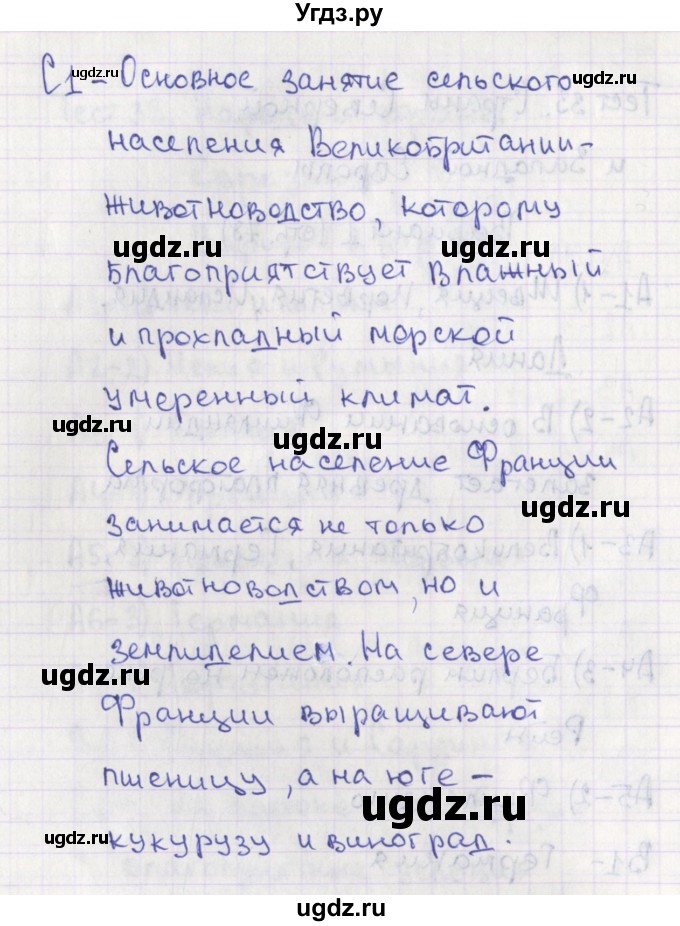 Угдз.ру
С1 – Основное занятие сельского
населения Великобритании –
животноводство, которому
благоприятствует влажный
и прохладный морской
умеренный климат.
Сельское население Франции
занимается не только
животноводством, но и
земледелием. На севере
Франции выращивают
пшеницу, а на юге –
кукурузу и виноград.
ugdz.ru
ugdz.ru
ugdz.ru
ugdz.ru
ugdz.ru
ugdz.ru
ugdz.ru
ugdz.ru
ugdz.ru
ugdz.ru
ugdz.ru
ugdz.ru
ugdz.ru
ugdz.ru